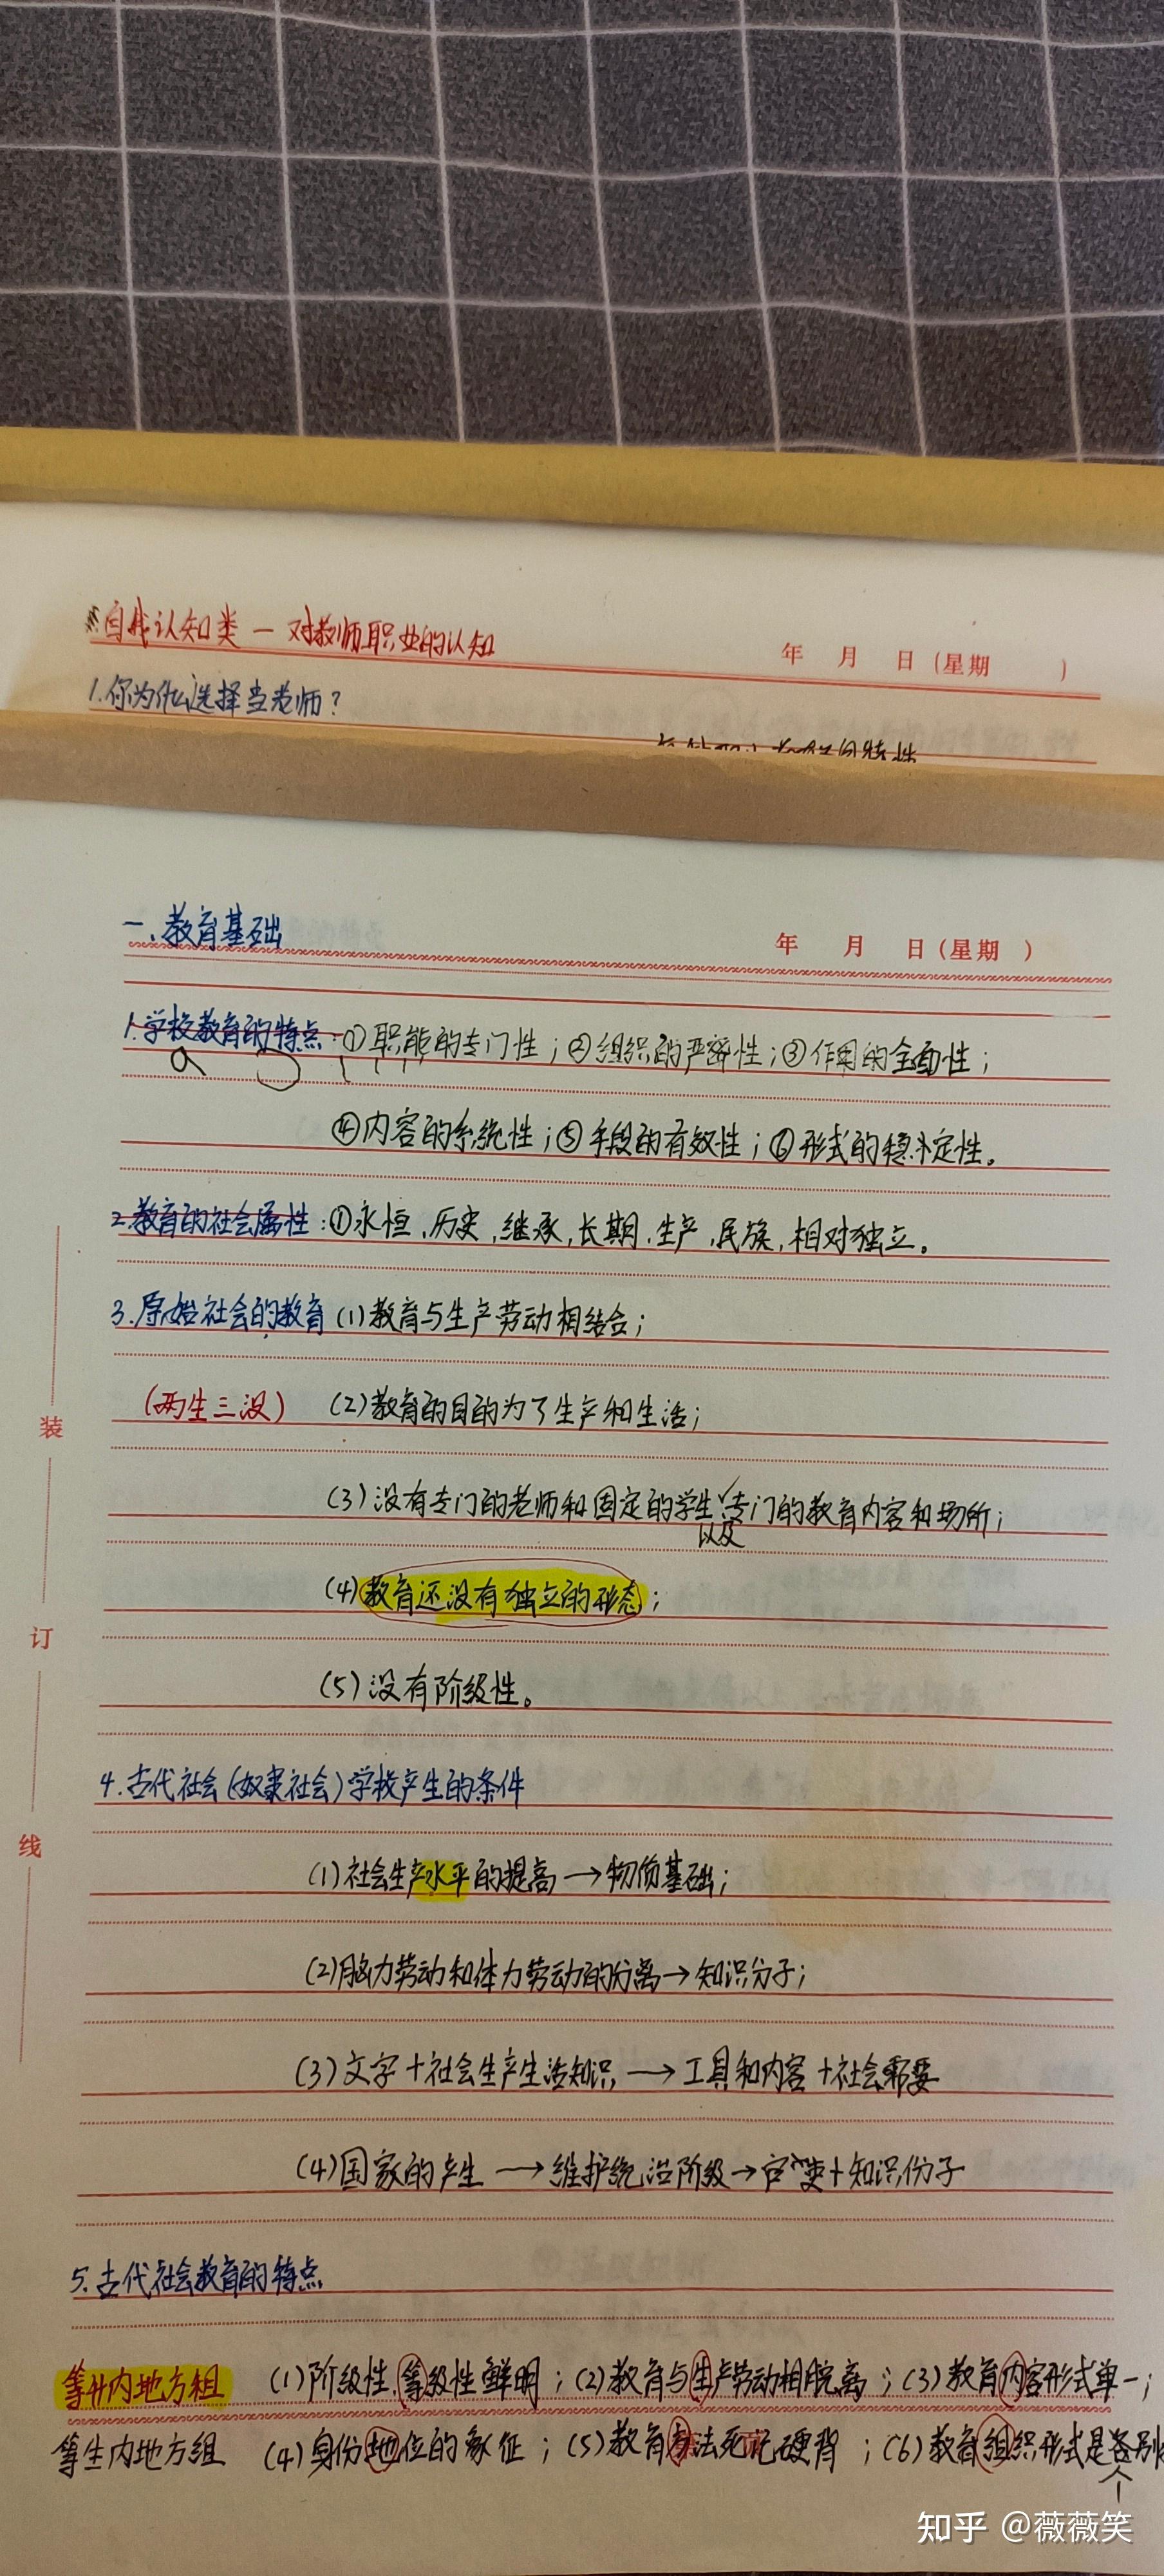 自我认知类一对教师职业的认知
年 月 日(星期 )
1.你为什么选择当老师?
一、教育基础
年 月 日(星期 )
1.学校教育的特点:①职能的专门性;②组织的严密性;③作用的全面性;
④内容的系统性;⑤手段的有效性;⑥形式的稳定性。
2.教育的社会属性:①永恒,历史,继承,长期,生产,民族,相对独立。
3.原始社会的教育(1)教育与生产劳动相结合;
(两生三没) (2)教育的目的为了生产和生活;
装
(3)没有专门的老师和固定的学生以及专门的教育内容和场所;
(4)教育还没有独立的形态;
订
(5)没有阶级性。
4.古代社会(奴隶社会)学校产生的条件
线
(1)社会生产水平的提高→物质基础;
(2)脑力劳动和体力劳动的分离→知识分子;
(3)文字+社会生产生活知识→工具和内容+社会需要
(4)国家的产生→维护统治阶级→官吏+知识份子
5.古代社会教育的特点
等升内地方组 (1)阶级性,等级性鲜明;(2)教育与生产劳动相脱离;(3)教育内容形式单一;
等生内地方组 (4)身份地位的象征;(5)教育方法死记硬背;(6)教育组织形式是个别
知乎 @薇薇笑